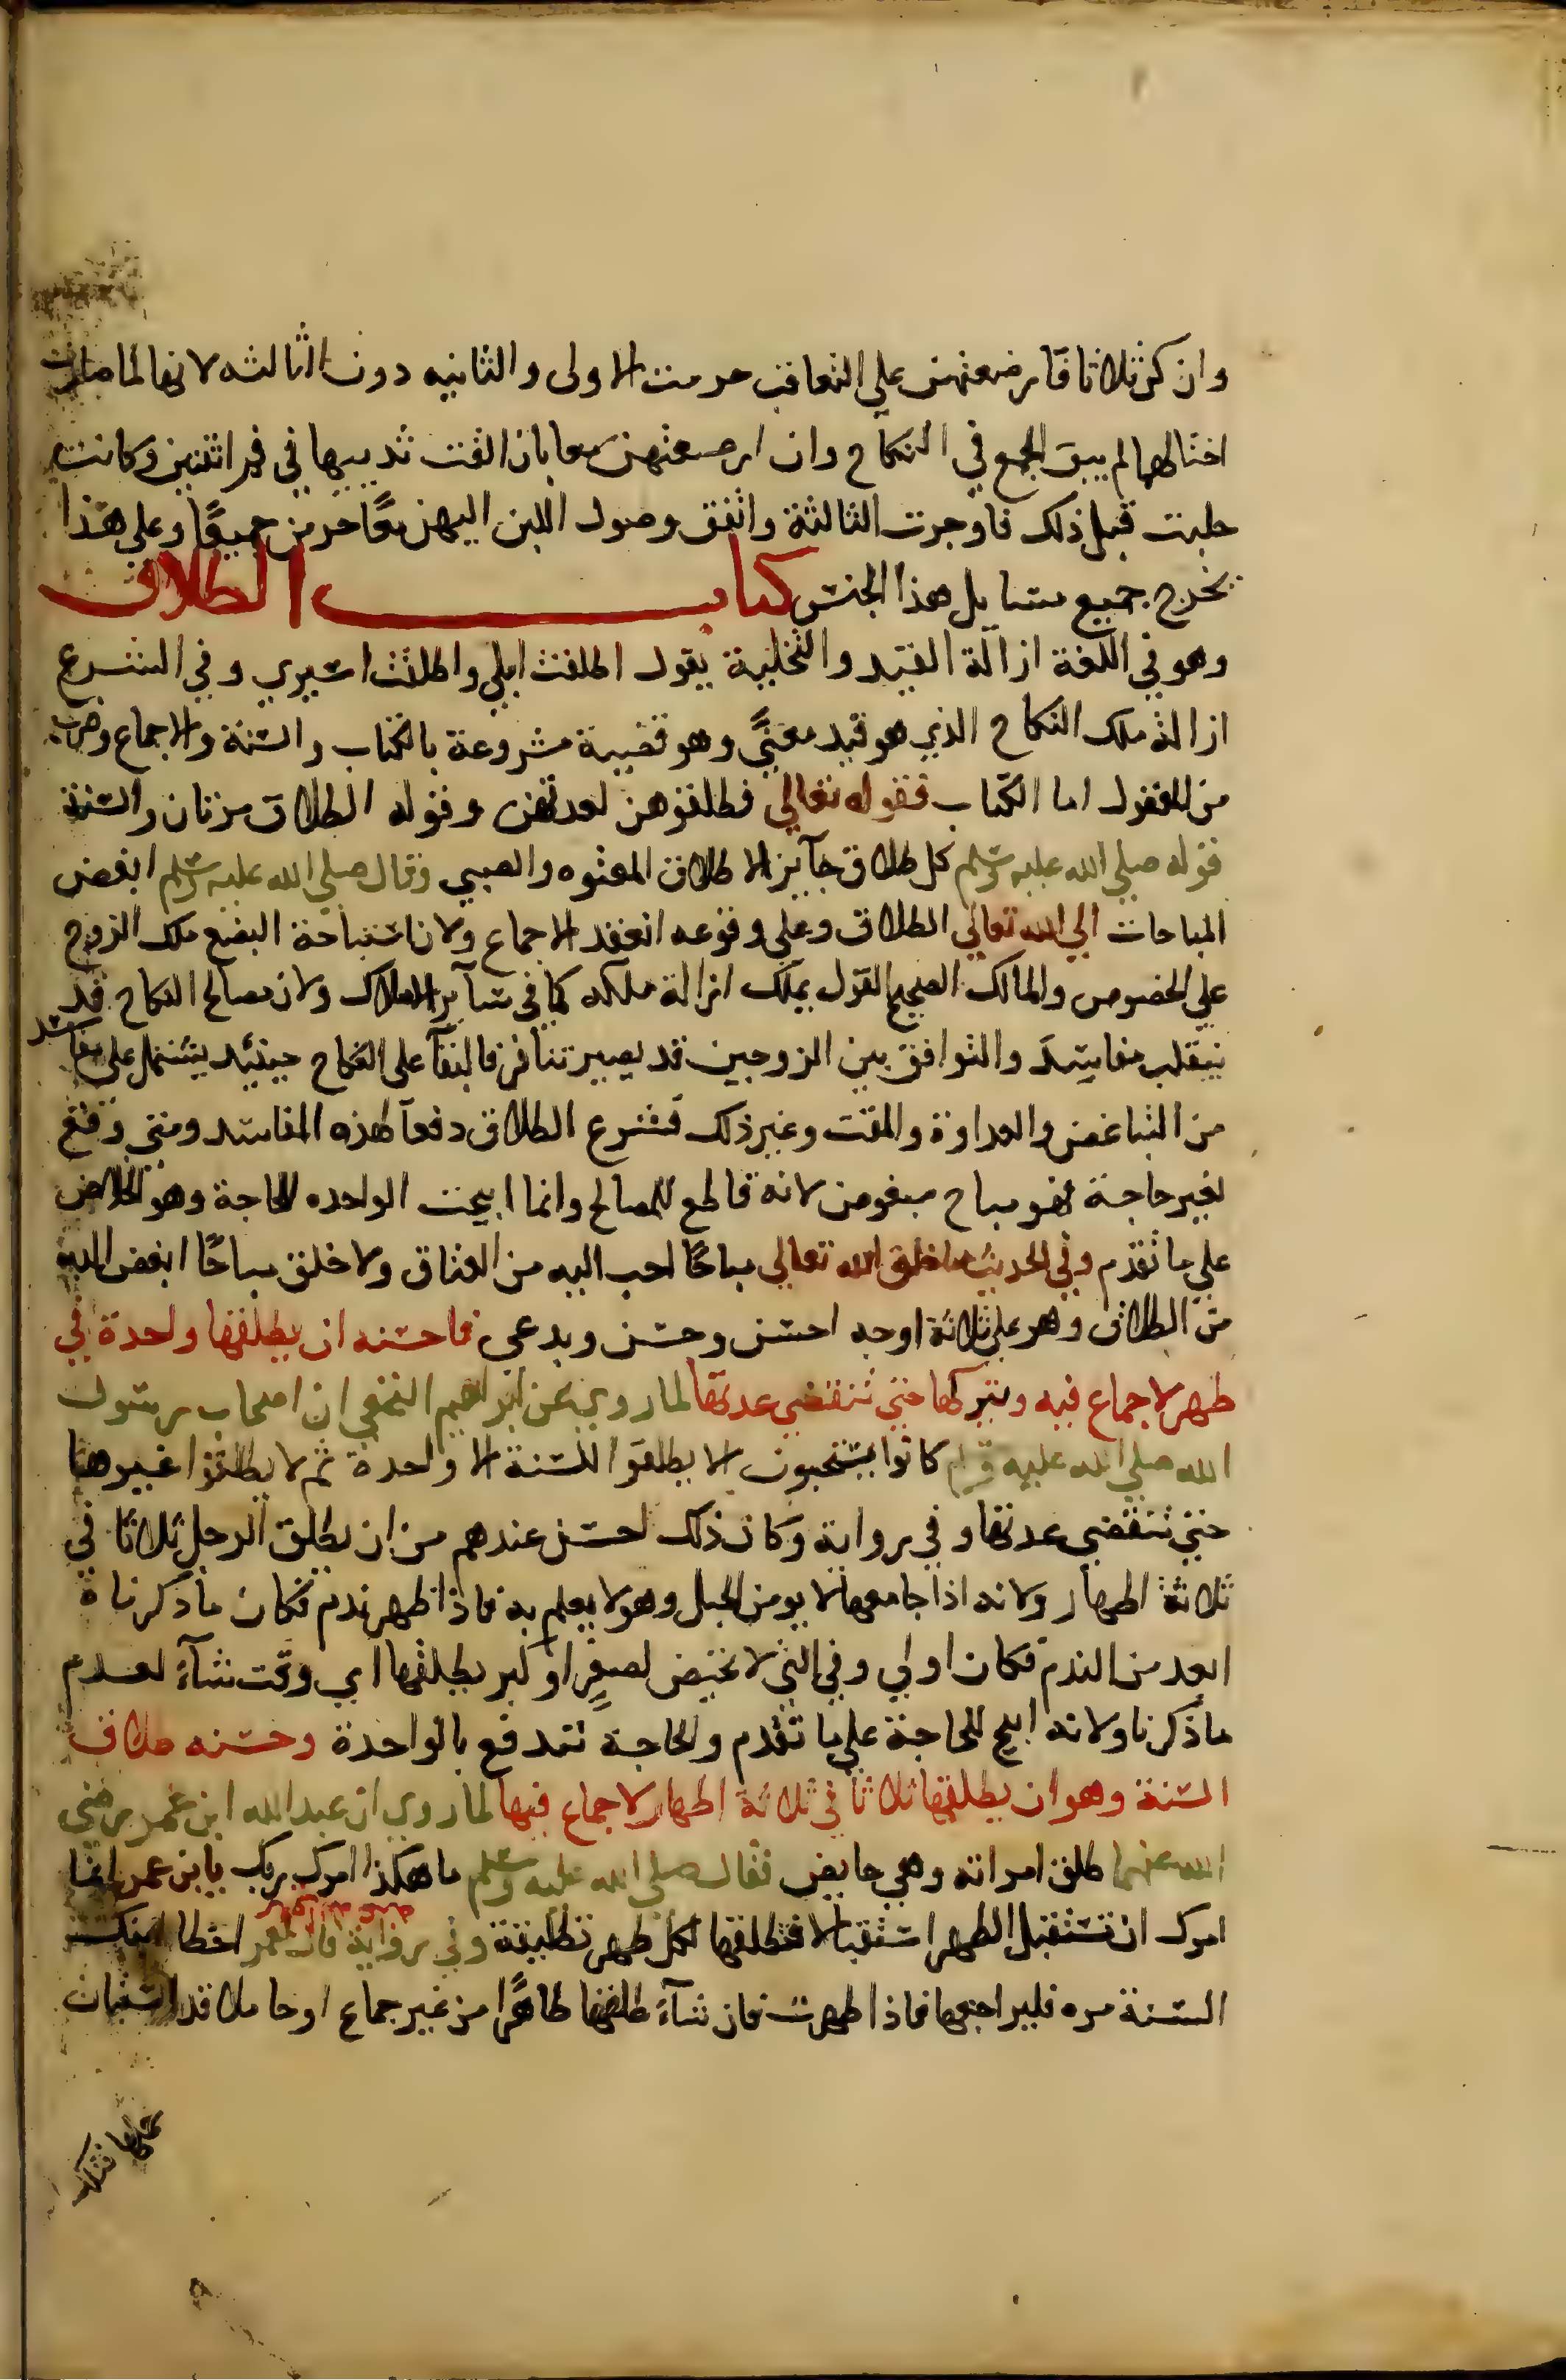 وان كن ثلاثا فارضعتهن علي التعاقب حرمت الاولى والثانيه دون الثالثه لانها لما صارت
اختا لهما لم يبق الجمع في النكاح وان ارضعتهن معا بان القت ثدييها في فم اثنتين وكانت
حلبت قبل ذلك فاوجرت الثالثة واتفق وصول اللبن اليهن معًا حرمن جميعًا وعلي هذا
يخرج جميع مسايل هذا الجنس كتاب الطلاق
وهو في اللغة ازالة القيد والتخلية يقول اطلقت ابلي واطلقت اسيري وفي الشرع
ازالة ملك النكاح الذي هو قيد معنًي وهو قضية مشروعة بالكتاب والسنة والاجماع وضرب
من المعقول اما الكتاب فقوله تعالي فطلقوهن لعدتهن وقوله الطلاق مرتان والسنة
قوله صلي الله عليه وسلم كل طلاق جآيز الا طلاق المعتوه والصبي وقال صلي الله عليه وسلم ابغض
المباحات الي الله تعالي الطلاق وعلي وقوعه انعقد الاجماع ولان استباحة البضع ملك الزوج
علي الخصوص والمالك الصحيح القول يملك ازالة ملكه كما في سآير الاملاك ولان مصالح النكاح قد
ينقلب مفاسد والتوافق بين الزوجين قد يصير تنافر فالبقآ على النكاح حينئد يشتمل علي مفاسد
من التباغض والعداوة والمقت وغير ذلك فشرع الطلاق دفعآ لهذه المفاسد ومتي وقع
لغير حاجة فهو مباح مبغوض لانه قاطع للمصالح وانما ابيحت الواحده للحاجة وهو الخلاص
علي ما تقدم وفي الحديث ما خلق الله تعالي مباحًا احب اليه من العتاق ولا خلق مباحًا ابغض اليه
من الطلاق وهو علي ثلاثة اوجه احسن وحسن وبدعي فاحسنه ان يطلقها واحدة في
طهر لا جماع فيه ويتركها حتي تنقضي عدتها لما روي عن ابراهيم النخعي ان اصحاب رسول
الله صلي الله عليه وسلم كانوا يستحبون الا يطلقوا للسنة الا واحدة ثم لا يطلقوا غيرها
حتي تنقضي عدتها وفي رواية وكان ذلك احسن عندهم من ان يطلق الرجل ثلاثا في
ثلاثة اطهار ولانه اذا جامعها لا يومن الحبل وهو لا يعلم به فاذا ظهر ندم فكان ما ذكرناه
ابعد من الندم فكان اولي وفي التي لا تحيض لصغرٍ او كبر يطلقها اي وقت شآء لعدم
ما ذكرنا ولانه ابيح للحاجة علي ما تقدم والحاجة تندفع بالواحدة وحسنه طلاق
السنة وهو ان يطلقها ثلاثا في ثلاثة اطهار لا جماع فيها لما روي ان عبد الله ابن عمر رضي
الله عنهما طلق امراته وهي حايض فقال صلي الله عليه وسلم ما هكذا امرك ربك يا بن عمر انما
امرك ان تستقبل الطهر استقبالا فتطلقها لكل طهر تطليقة وفي رواية قال لعمر اخطا ابنك
السنة مره فليراجعها فاذا طهرت فان شآء طلقها طاهرًا من غير جماع او حاملا قد استبان
حملها فتلك